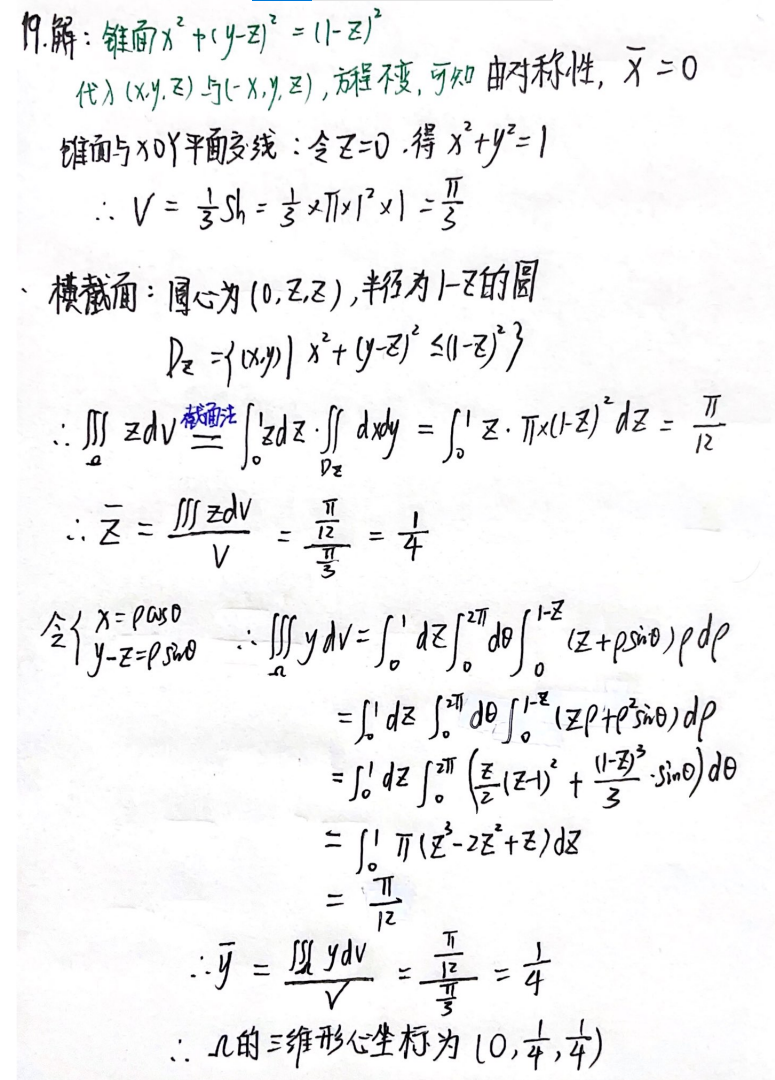 19.解：锥面x²+(y-z)²=(1-z)²
代入(x,y,z)与(-x,y,z),方程不变,可知由对称性, x̄=0
锥面与xOY平面交线：令z=0.得x²+y²=1
∴ V = 1/3 Sh = 1/3×π×1²×1 = π/3
横截面：圆心为(0,z,z),半径为1-z的圆
D_z={(x,y)| x²+(y-z)²≤(1-z)²}
∴ ∭_Ω zdv 截面法= ∫_0^1 zdz·∬_{D_z} dxdy = ∫_0^1 z·π×(1-z)²dz = π/12
∴ z̄ = ∭zdv/V = (π/12)/(π/3) = 1/4
令{x=ρcosθ y-z=ρsinθ ∴ ∭_Ω ydv=∫_0^1 dz∫_0^{2π} dθ∫_0^{1-z} (z+ρsinθ)ρdρ
=∫_0^1 dz ∫_0^{2π} dθ∫_0^{1-z} (zρ+ρ²sinθ)dρ
=∫_0^1 dz ∫_0^{2π} (z/2(z-1)²+(1-z)³/3·sinθ)dθ
=∫_0^1 π(z³-2z²+z)dz
= π/12
∴ ȳ = ∭_Ω ydv/V = (π/12)/(π/3) = 1/4
∴ Ω的三维形心坐标为(0,1/4,1/4)